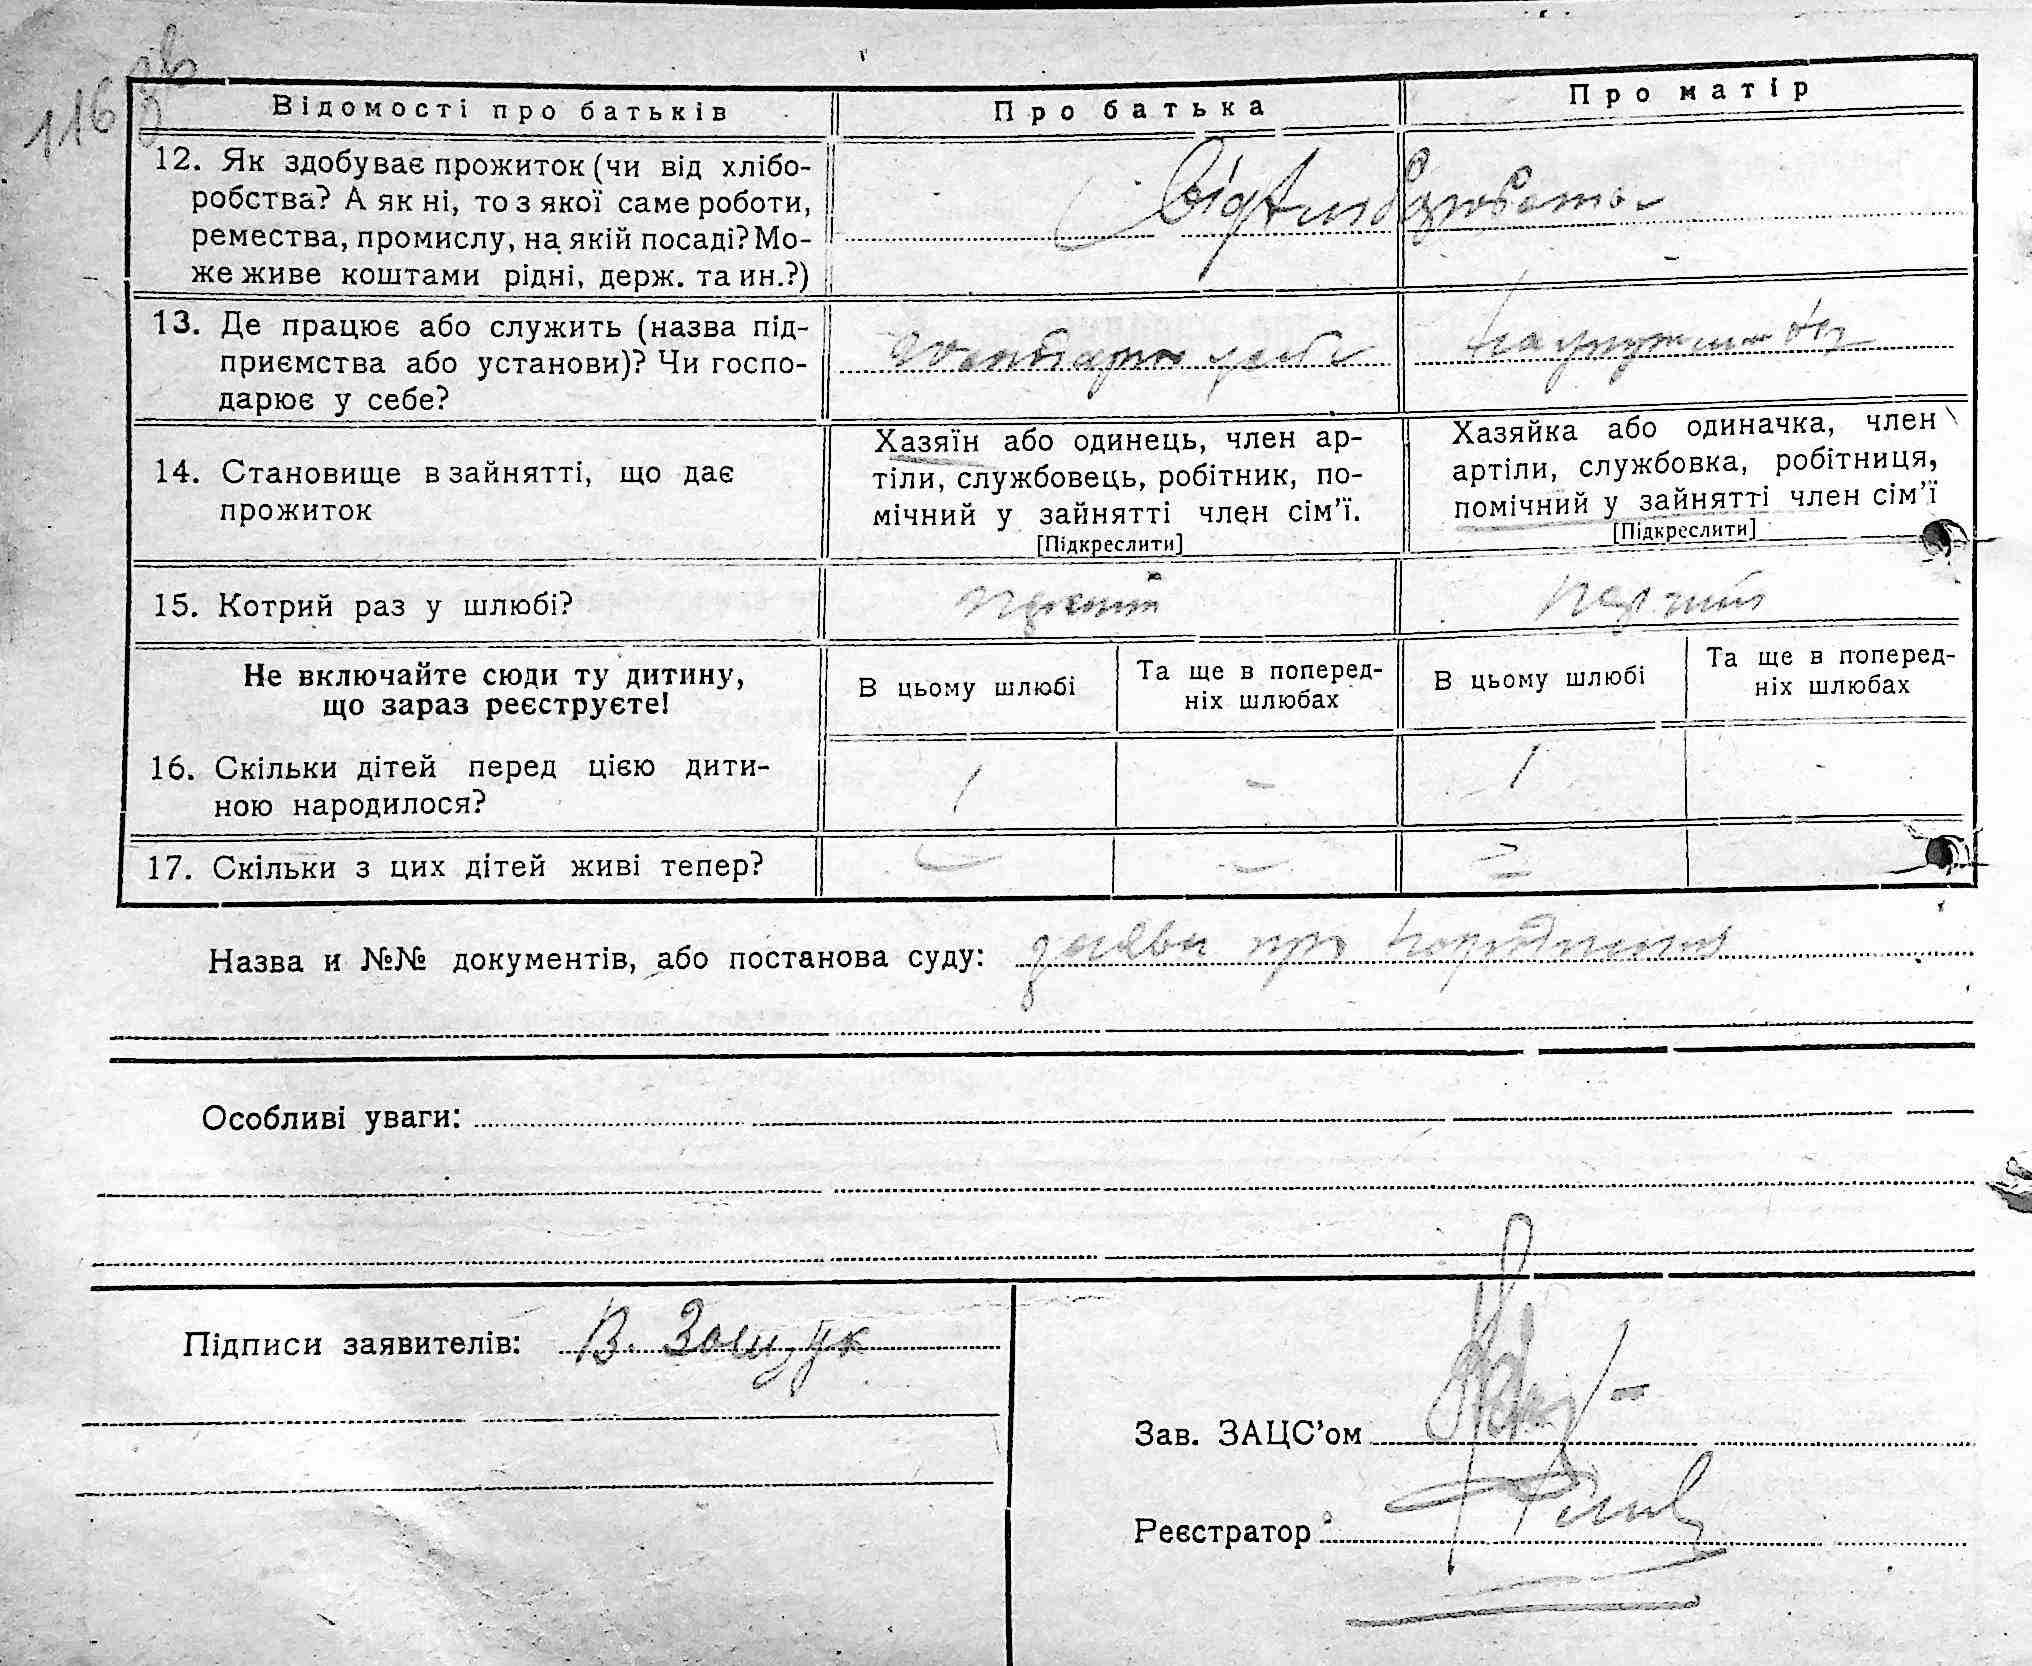 116 зв
Відомості про батьків Про батька Про матір
12. Як здобуває прожиток (чи від хлібо-
робства? А як ні, то з якої саме роботи,
ремества, промислу, на якій посаді? Мо-
же живе коштами рідні, держ. та ин.?)
Від хліборобства
13. Де працює або служить (назва під-
приємства або установи)? Чи госпо-
дарює у себе?
14. Становище в зайнятті, що дає
прожиток
Хазяїн або одинець, член ар-
тіли, службовець, робітник, по-
мічний у зайнятті член сім’ї.
[Підкреслити]
Хазяйка або одиначка, член
артіли, службовка, робітниця,
помічний у зайнятті член сім’ї
[Підкреслити]
15. Котрий раз у шлюбі? перший перший
Не включайте сюди ту дитину,
що зараз реєструєте!
В цьому шлюбі
Та ще в поперед-
ніх шлюбах
В цьому шлюбі
Та ще в поперед-
ніх шлюбах
16. Скільки дітей перед цією дити-
ною народилося?
1 - 1 -
17. Скільки з цих дітей живі тепер? - -
Назва и №№ документів, або постанова суду: заява про
Особливі уваги:
Підписи заявителів: В. Зощук
Зав. ЗАЦС’ом
Реєстратор